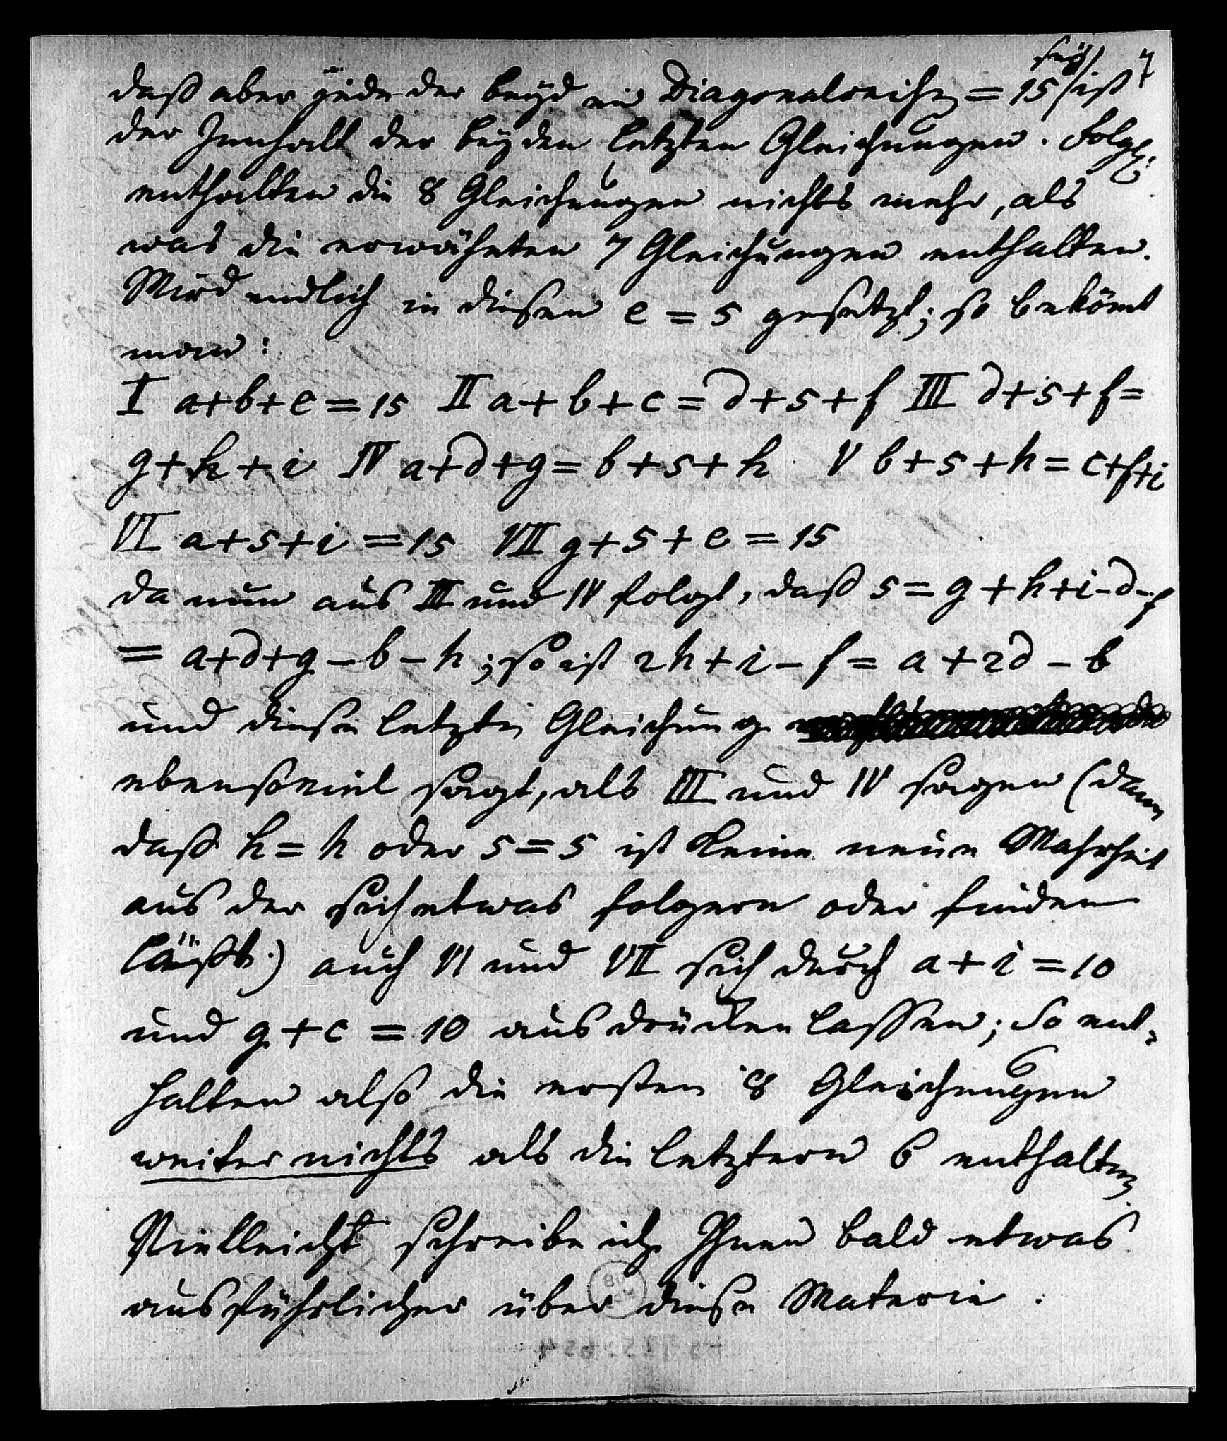 7
daß aber jede der beyden Diagonalreihen = 15 sey, ist
der Innhalt der beyden letzten Gleichungen. Folgl:
enthalten die 8 Gleichungen nichts mehr, als
was die erwähnten 7 Gleichungen enthalten.
Wird endlich in diesen e = 5 gesetzt; so bekömt
man:
I a+b+c = 15 II a+b+c = d+5+f III d+5+f =
g+h+i IV a+d+g = b+5+h V b+5+h = c+f+i
VI a+5+i = 15 VII g+5+c = 15
da nun aus III und IV folgt, daß 5 = g+h+i-d-f
= a+d+g-b-h; so ist 2h+i-f = a+2d-b
und diese letzte Gleichung
ebensoviel sagt, als III und IV sagen (dann
daß h = h oder 5 = 5 ist keine neue Wahrheit
aus der sich etwas folgern oder finden
läßt.) auch VI und VII sich durch a+i = 10
und g+c = 10 ausdrücken lassen; So ent-
halten alß die ersten 8 Gleichungen
weiter nichts als die letztern 6 enthalten.
Vielleicht schreibe ich Ihnen bald etwas
ausführlicher über diese Materie.